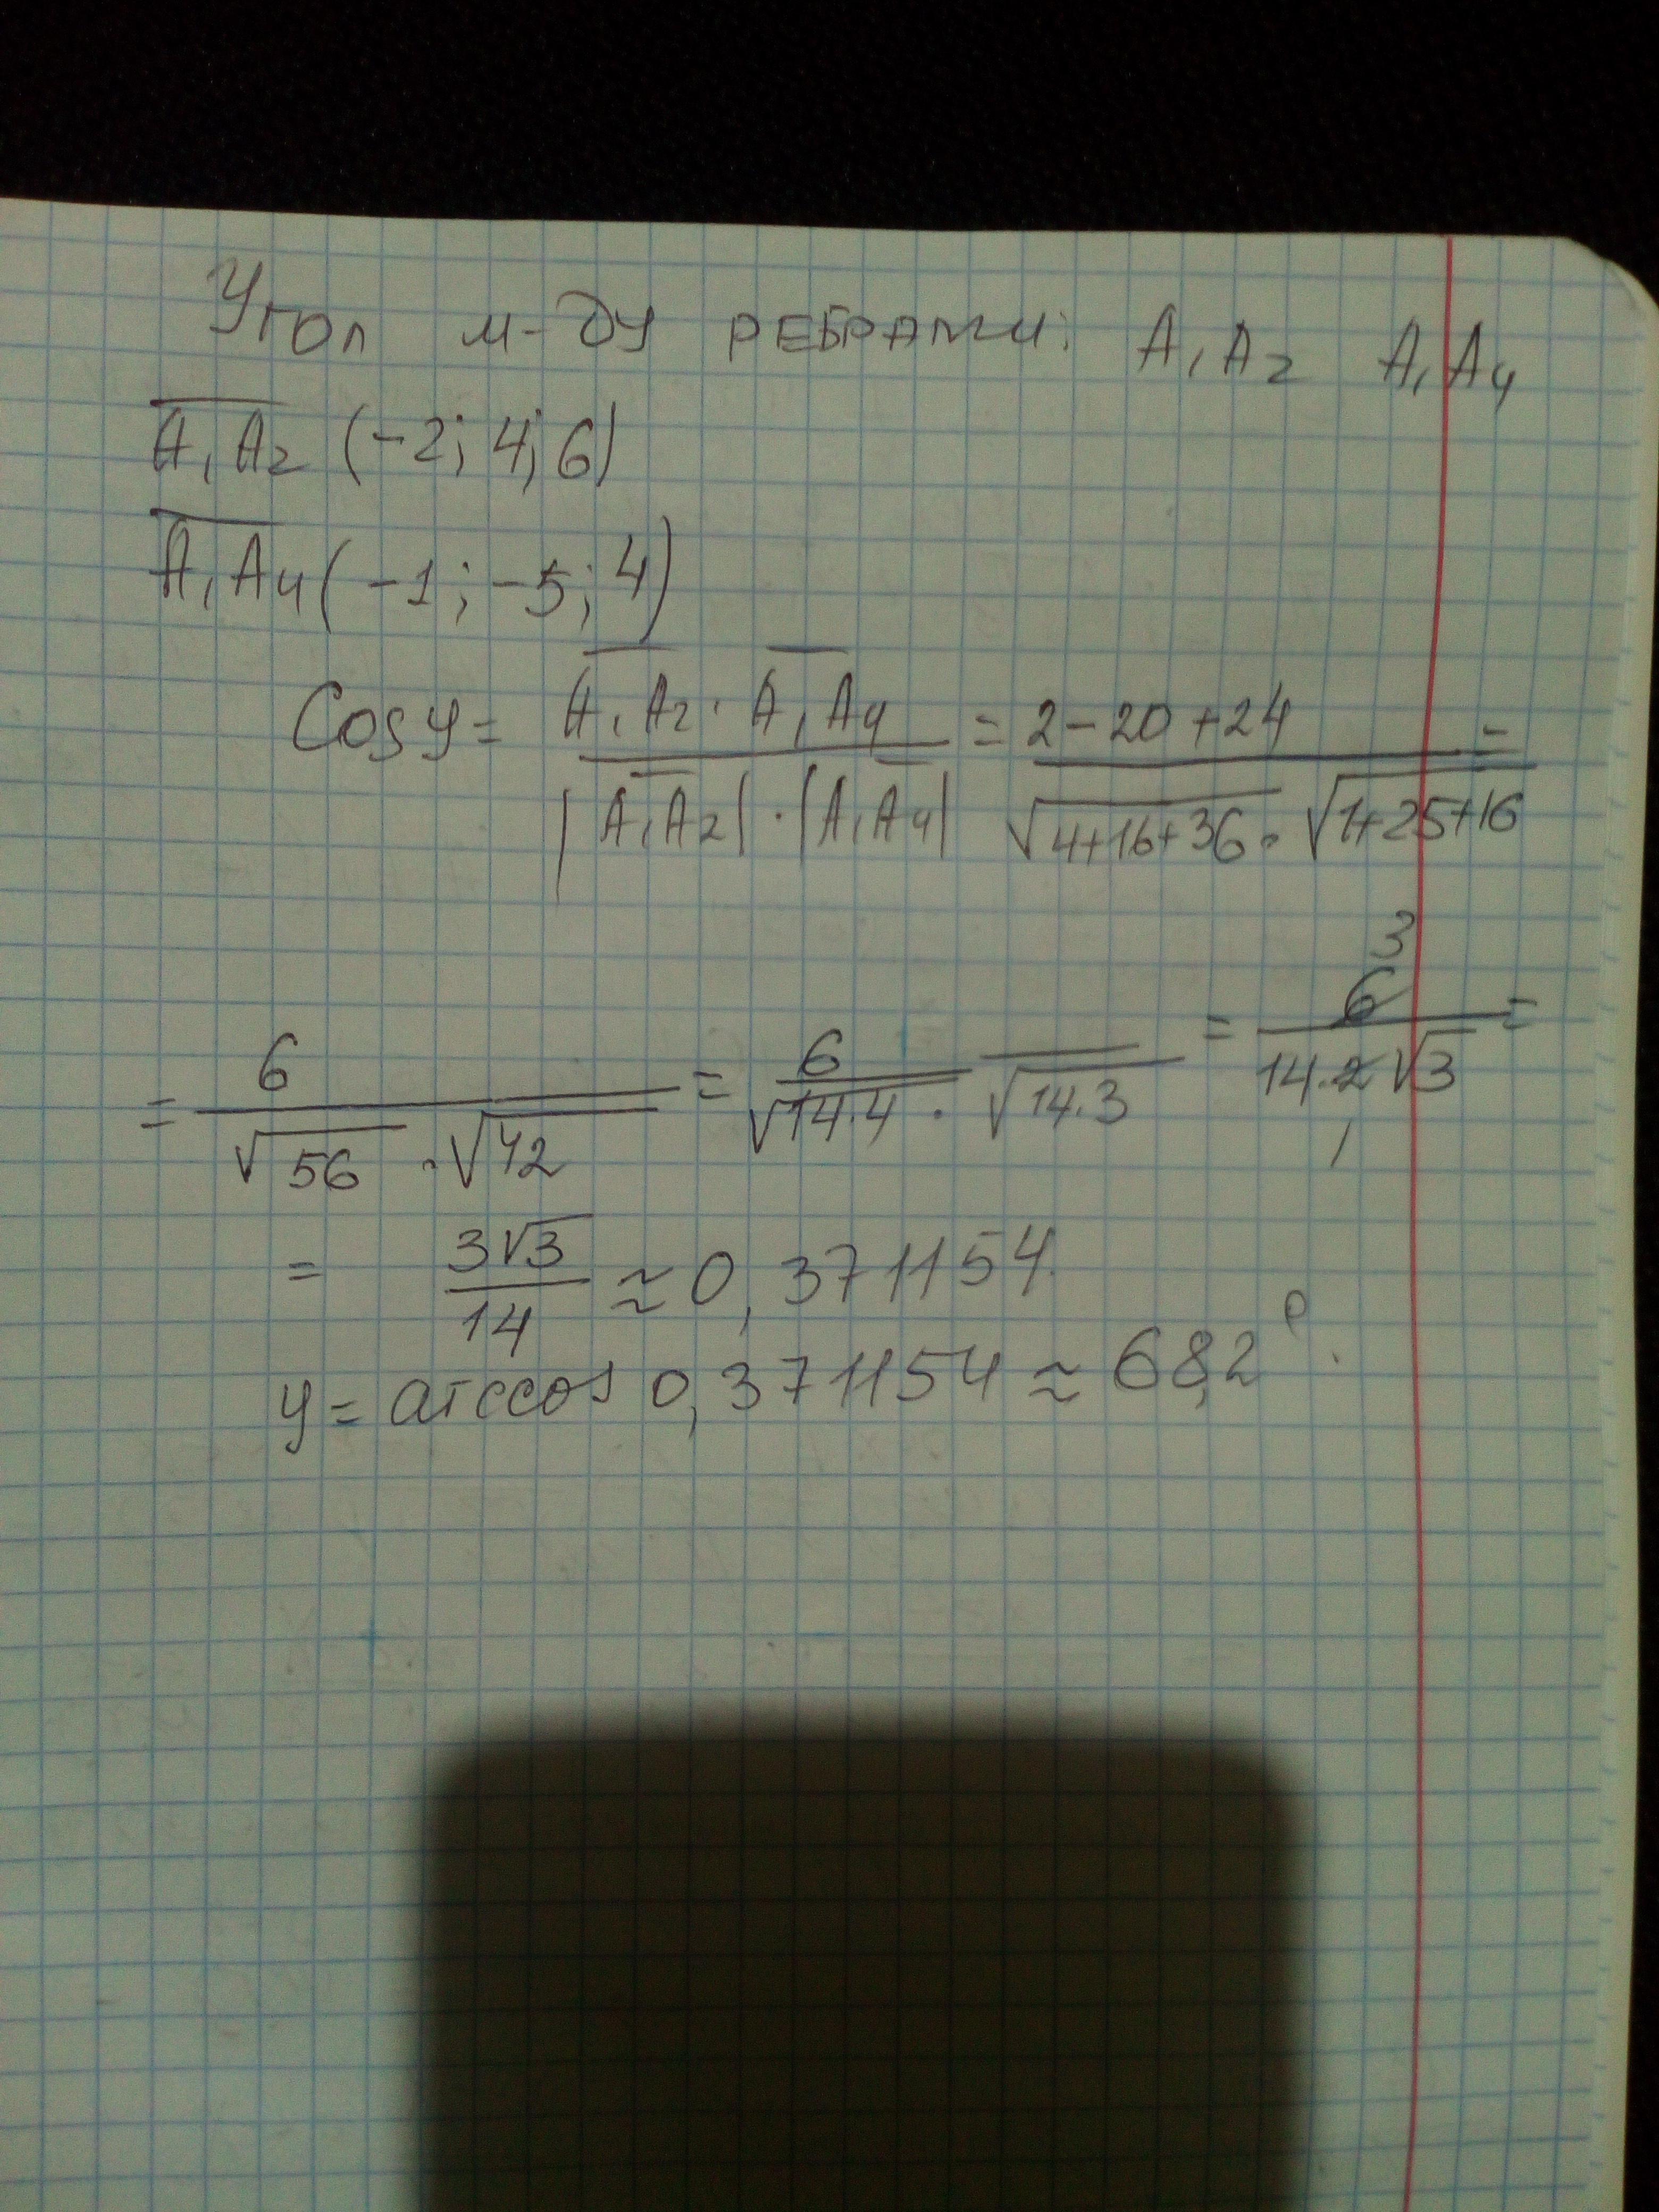 Угол м-ду ребрами: A₁A₂ A₁A₄
A₁A₂ (-2; 4; 6)
A₁A₄ (-1; -5; 4)
Cos y = A₁A₂ · A₁A₄ / |A₁A₂| · |A₁A₄| = 2-20+24 / √4+16+36 · √1+25+16 =
= 6 / √56 · √42 = 6 / √14·4 · √14·3 = 6 3 / 14·2√3 1 =
= 3√3 / 14 ≈ 0,371154.
y = arccos 0,371154 ≈ 68,2°.